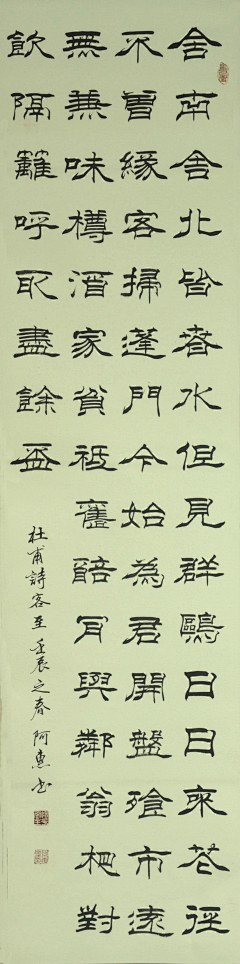 舍南舍北皆春水但見群鷗日日來花徑
不曾緣客掃蓬門今始為君開盤飱市遠
無兼味樽酒家貧祇舊醅肯與鄰翁相對
飲隔籬呼取盡餘盃
杜甫詩客至 壬辰之春 阿惠书